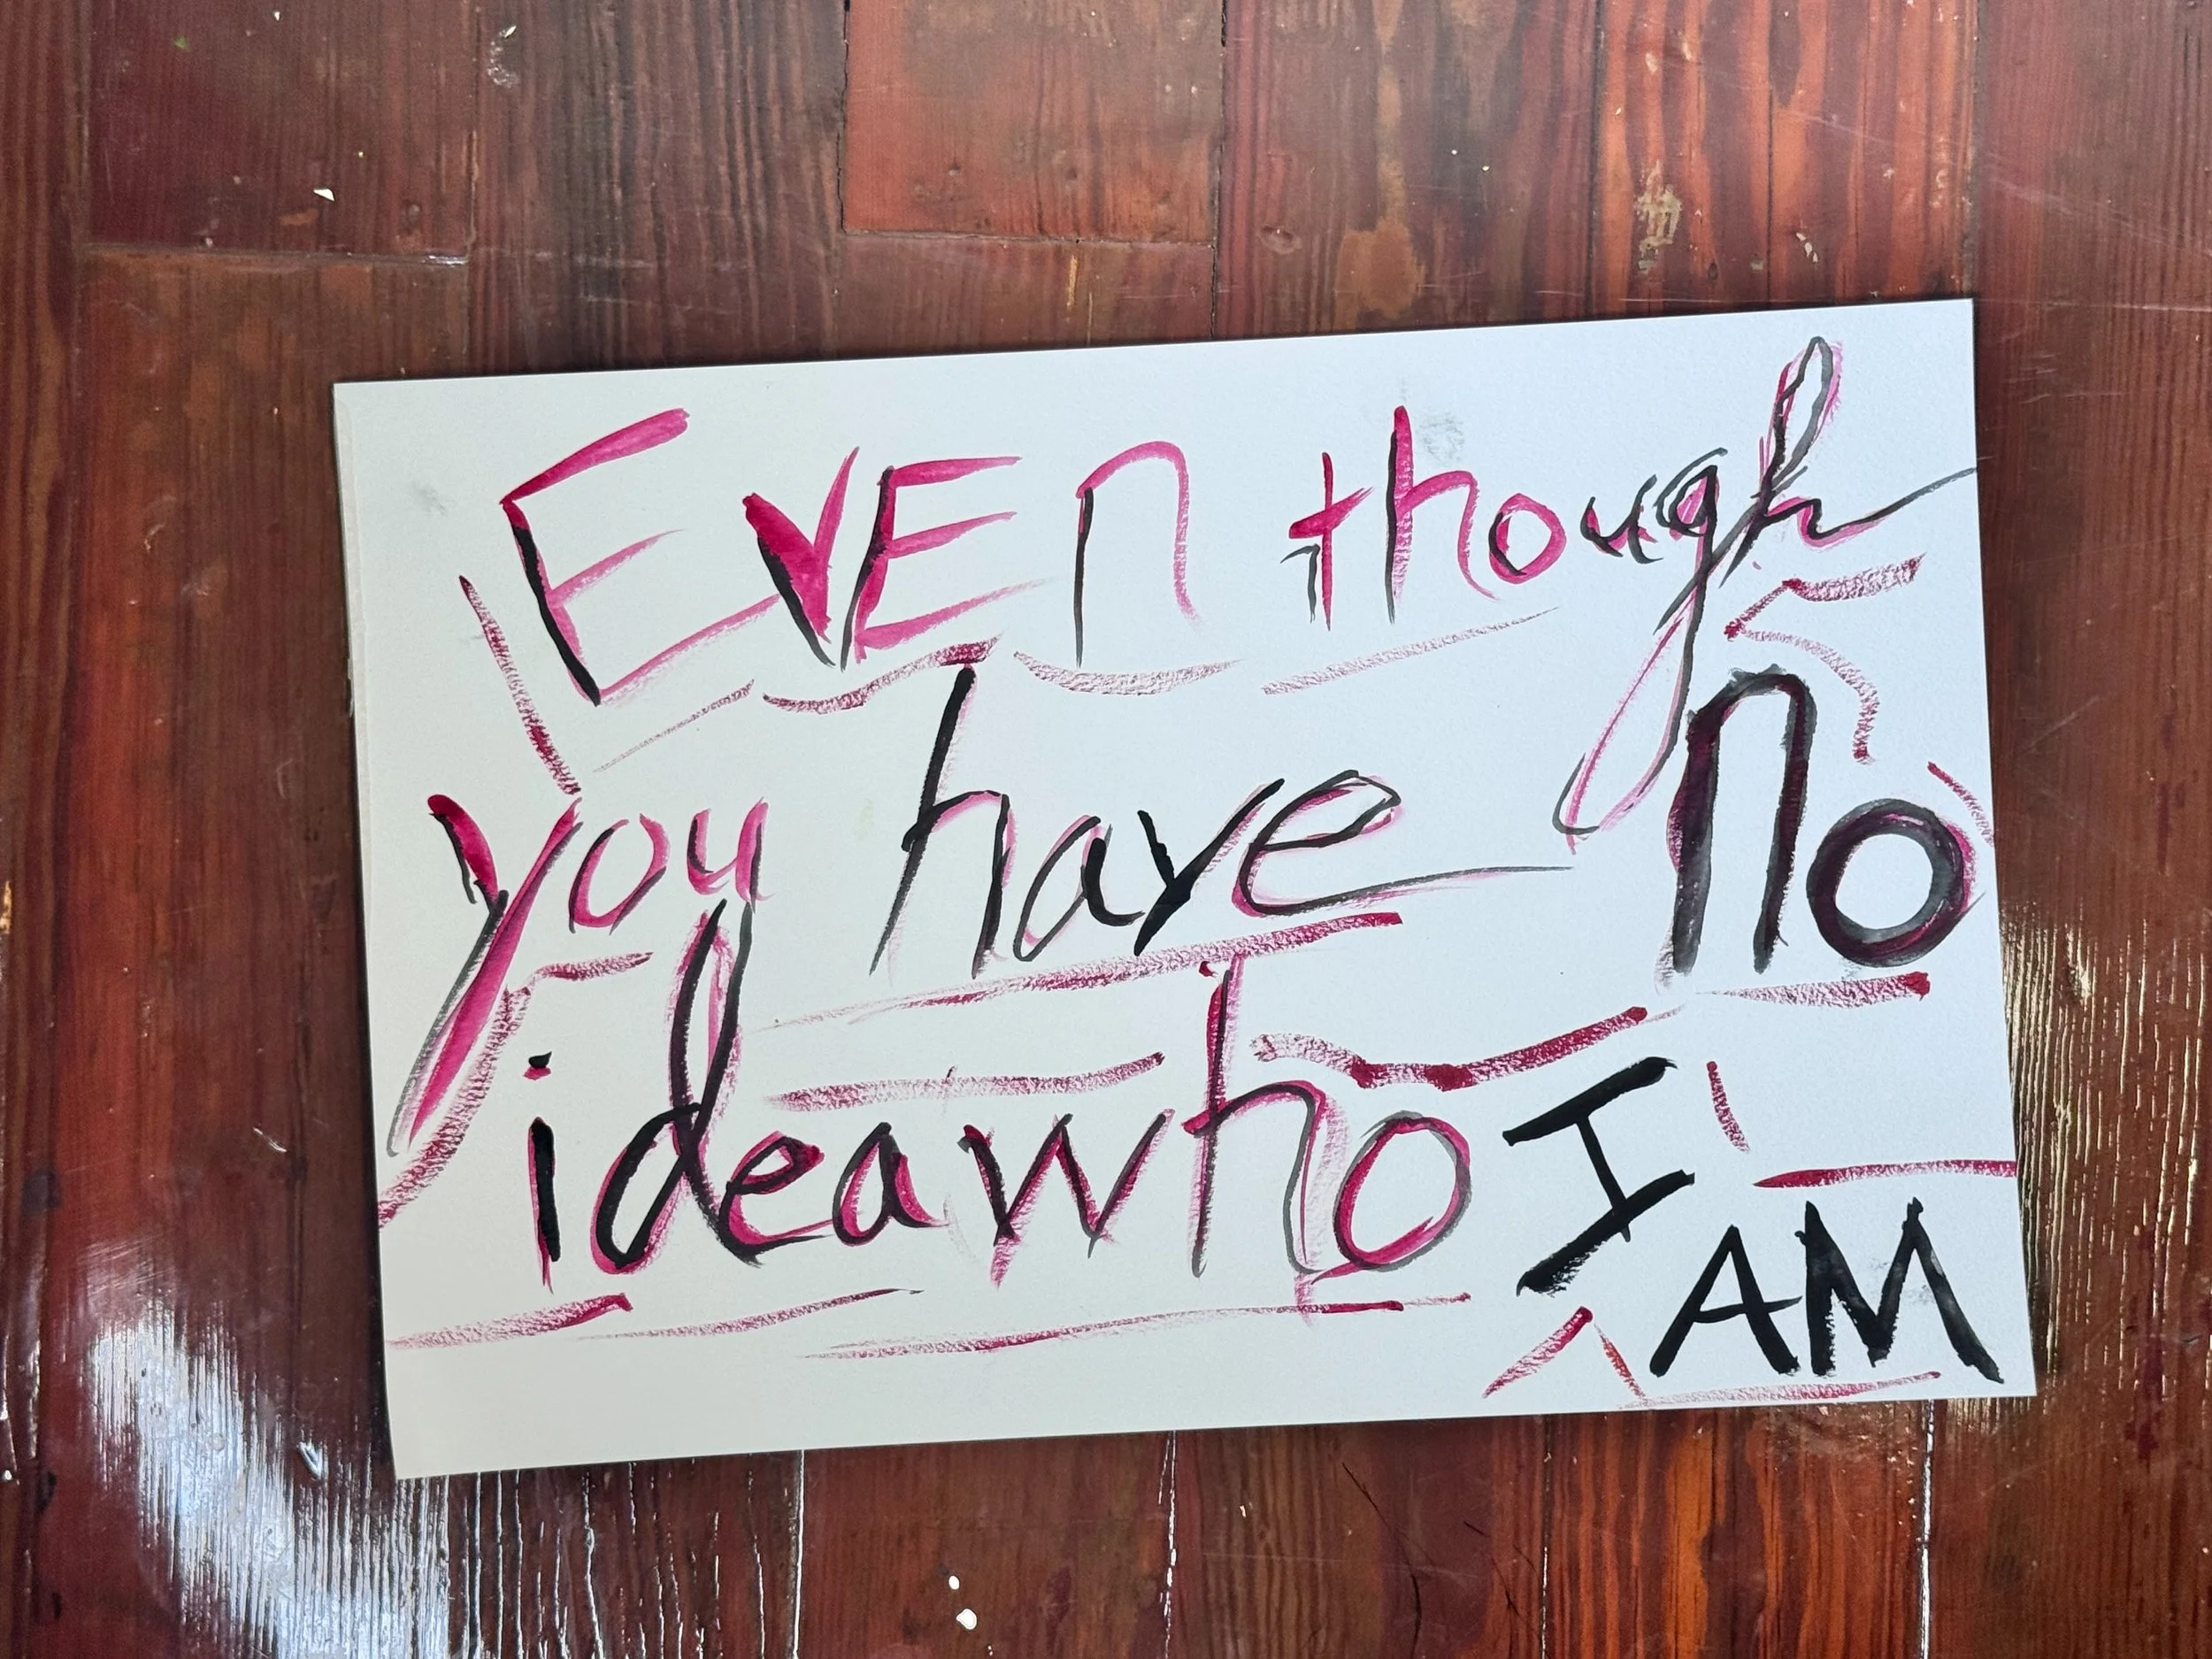 EvEn though
you have no
idea who I
AM